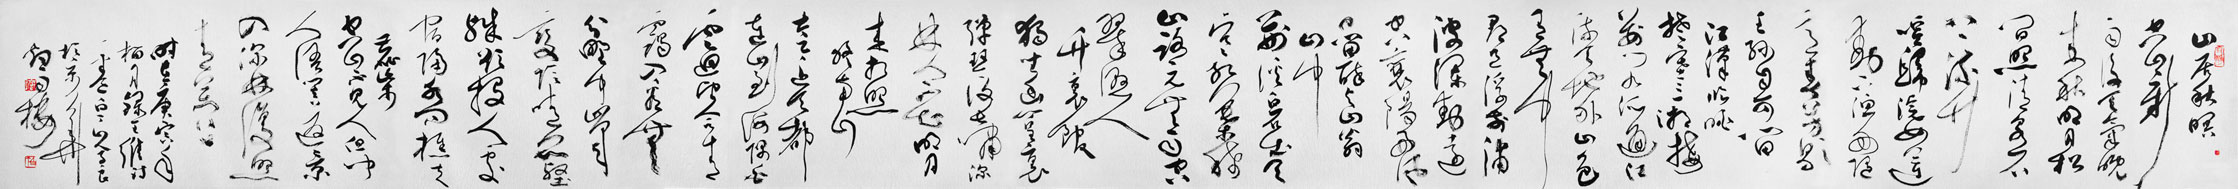 山居秋暝
空山新
雨后天气晚
来秋明月松
间照清泉石
上流竹
喧归浣女莲
动下渔舟随
意春芳歇
王孙自可留
江汉临眺
楚塞三湘接
荆门九派通江
流天地外山色
有无中
郡邑浮前浦
波澜动远
空襄阳好风
日留醉与山翁
山中
荆溪白石出天
寒红叶稀
山路元无雨空
翠湿人衣
竹里馆
独坐幽篁里
弹琴复长啸深
林人不知明月
来相照
终南山
太乙近天都
连山到海隅白
云回望合青
霭入看无
分野中峰变
阴晴众壑
殊欲投人处
宿隔水问樵夫
鹿柴
空山不见人但闻
人语响返景
入深林复照
青苔上
时在庚寅年
梅月录王维诗